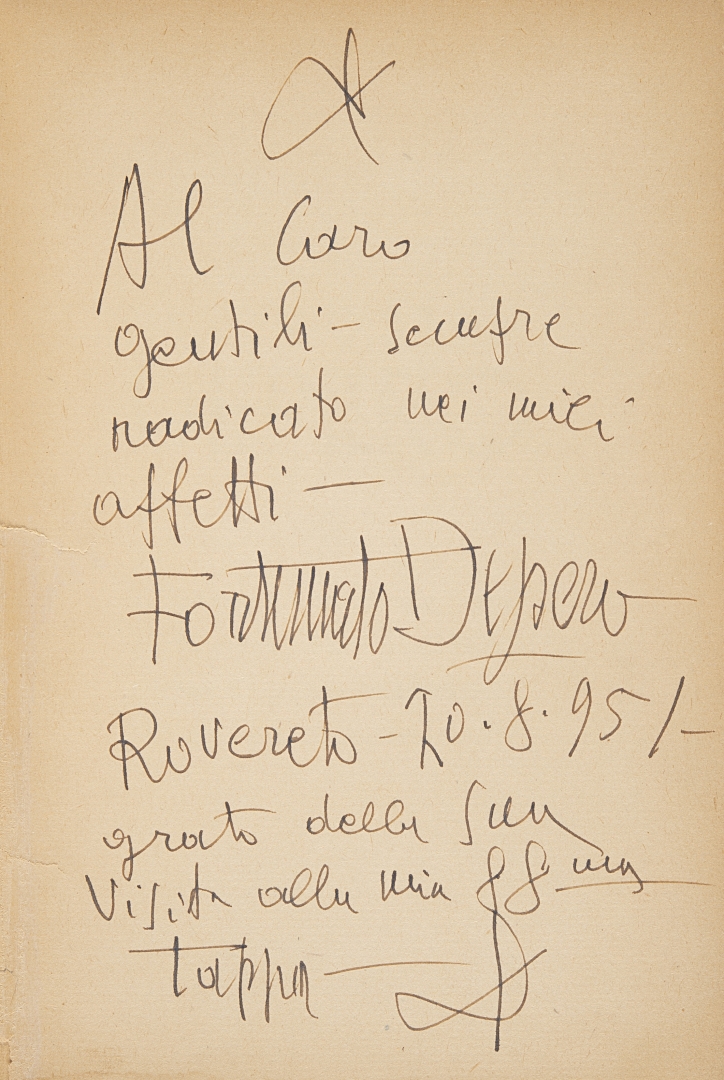 Al Caro
gentili — sempre
radicato nei miei
affetti —
Fortunato Depero
Rovereto - 20.8.951-
grato della sua
visita alla mia 88 ma
tappa —